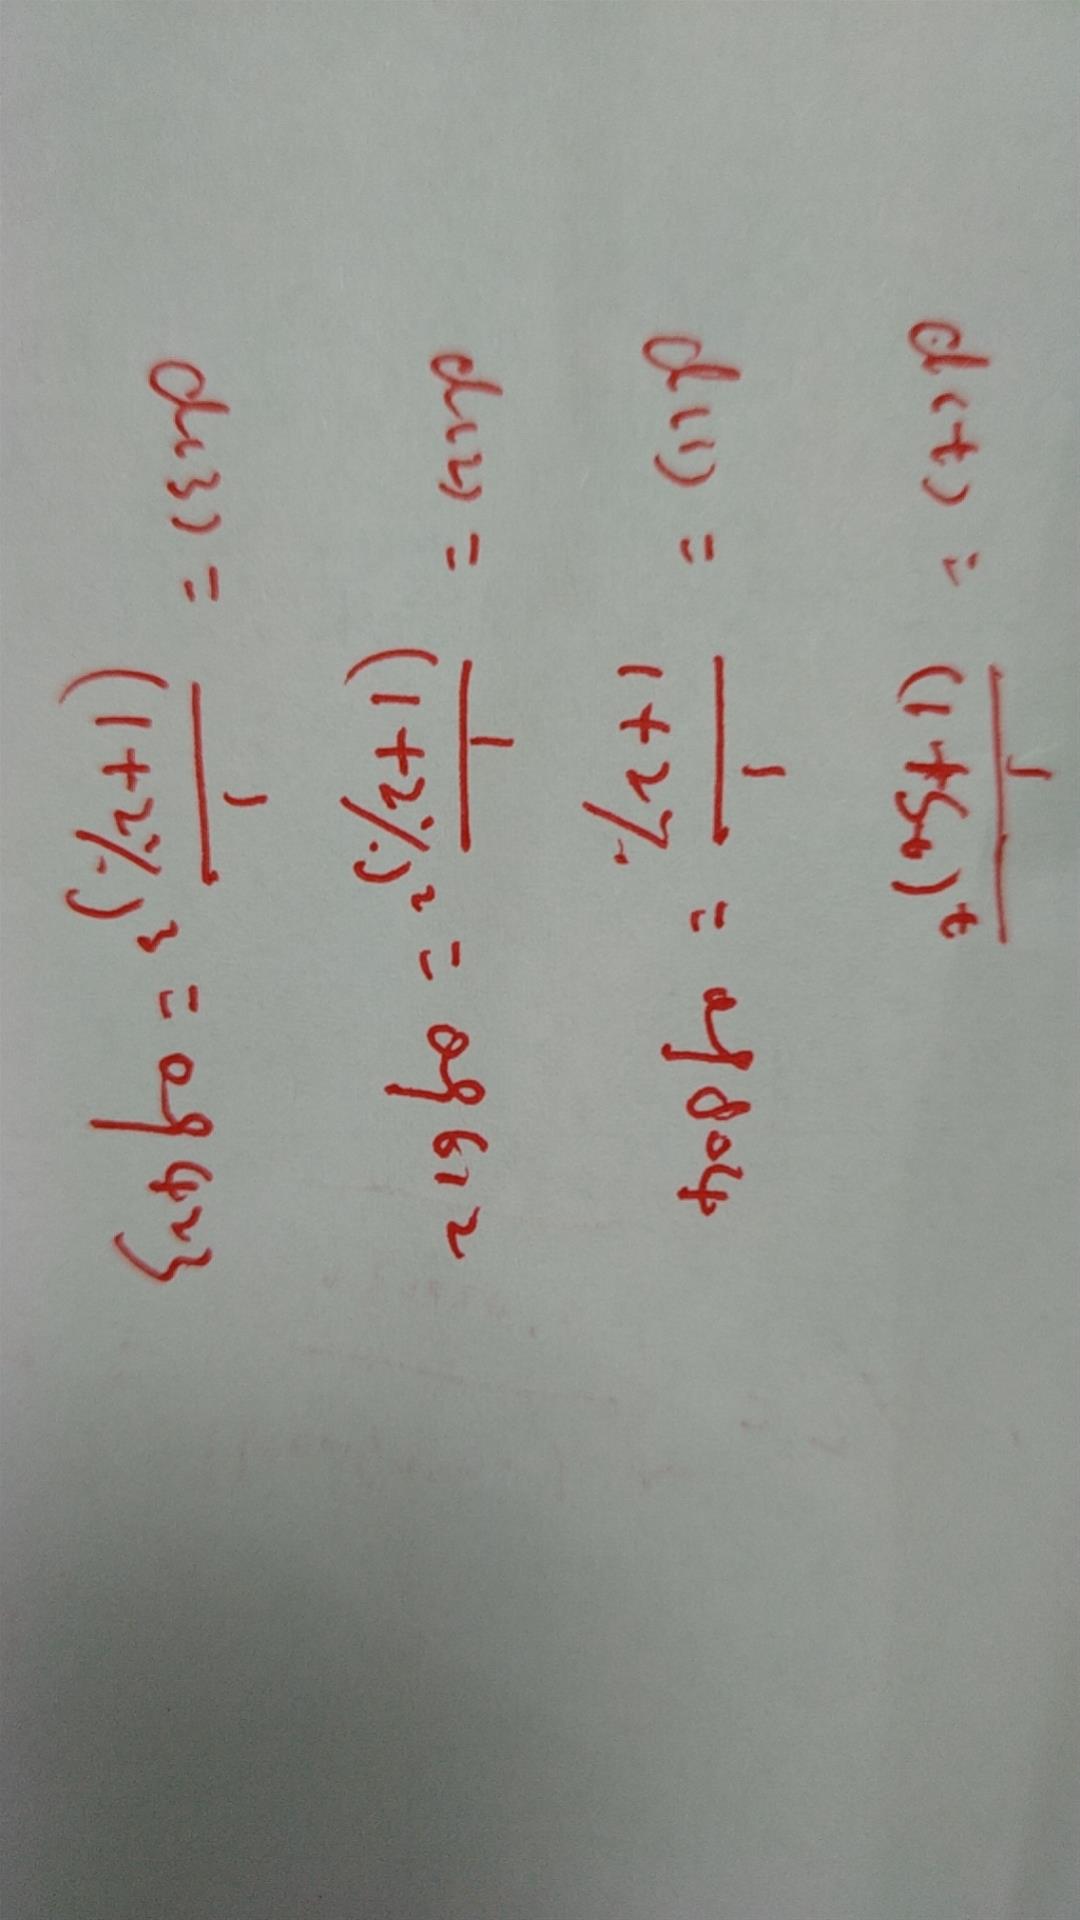 d(t) = 1/(1+S₀)^t
d(1) = 1/(1+2%) = 0.9804
d(2) = 1/(1+2%)² = 0.9612
d(3) = 1/(1+2%)³ = 0.9423